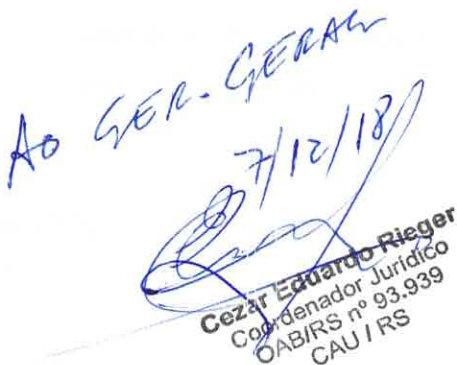 Ao GER. GERAL
7/12/18
Cezar Eduardo Rieger
Coordenador Jurídico
OAB/RS nº 93.939
CAU / RS